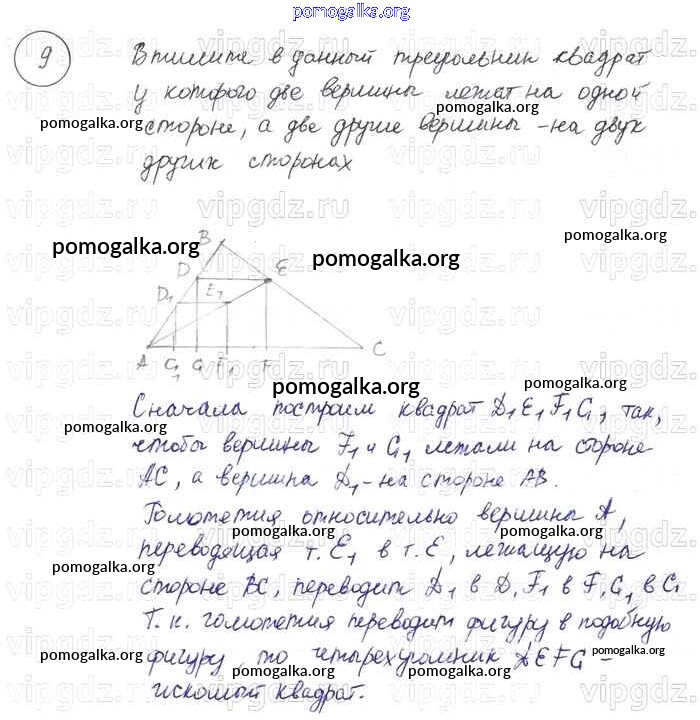 pomogalka.org
9
Впишите в данный треугольник квадрат
у которого две вершины лежат на одной
pomogalka.org pomogalka.org
стороне, а две другие вершины - на двух
других сторонах
vipgdz.ru vipgdz.ru vipgdz.ru
pomogalka.org pomogalka.org
pomogalka.org
B
D E
D1 E1
A G1 G F1 F C
pomogalka.org
pomogalka.org
Сначала построим квадрат D1E1F1G1, так,
pomogalka.org
чтобы вершины F1 и G1 лежали на стороне
AC, а вершина D1 - на стороне AB.
pomogalka.org pomogalka.org
Гомотетия относительно вершины A,
переводящая т. E1 в т. E, лежащую на
pomogalka.org
стороне BC, переводит D1 в D, F1 в F, G1 в G
Т. к. гомотетия переводит фигуру в подобную
pomogalka.org pomogalka.org pomogalka.org
фигуру, то четырехугольник DEFG -
искомый квадрат.
pomogalka.org